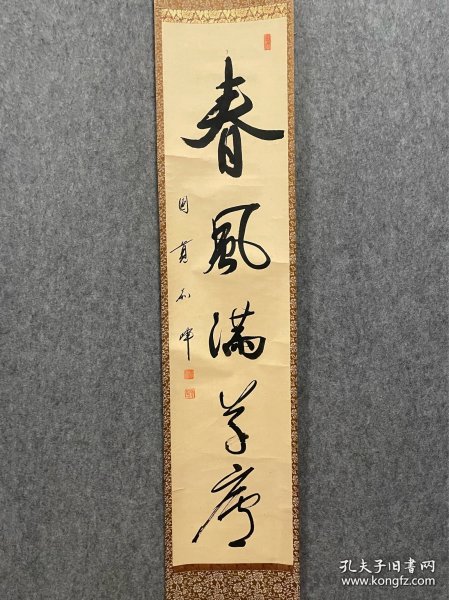 春風満草廬
孔夫子旧书网
www.kongfz.com